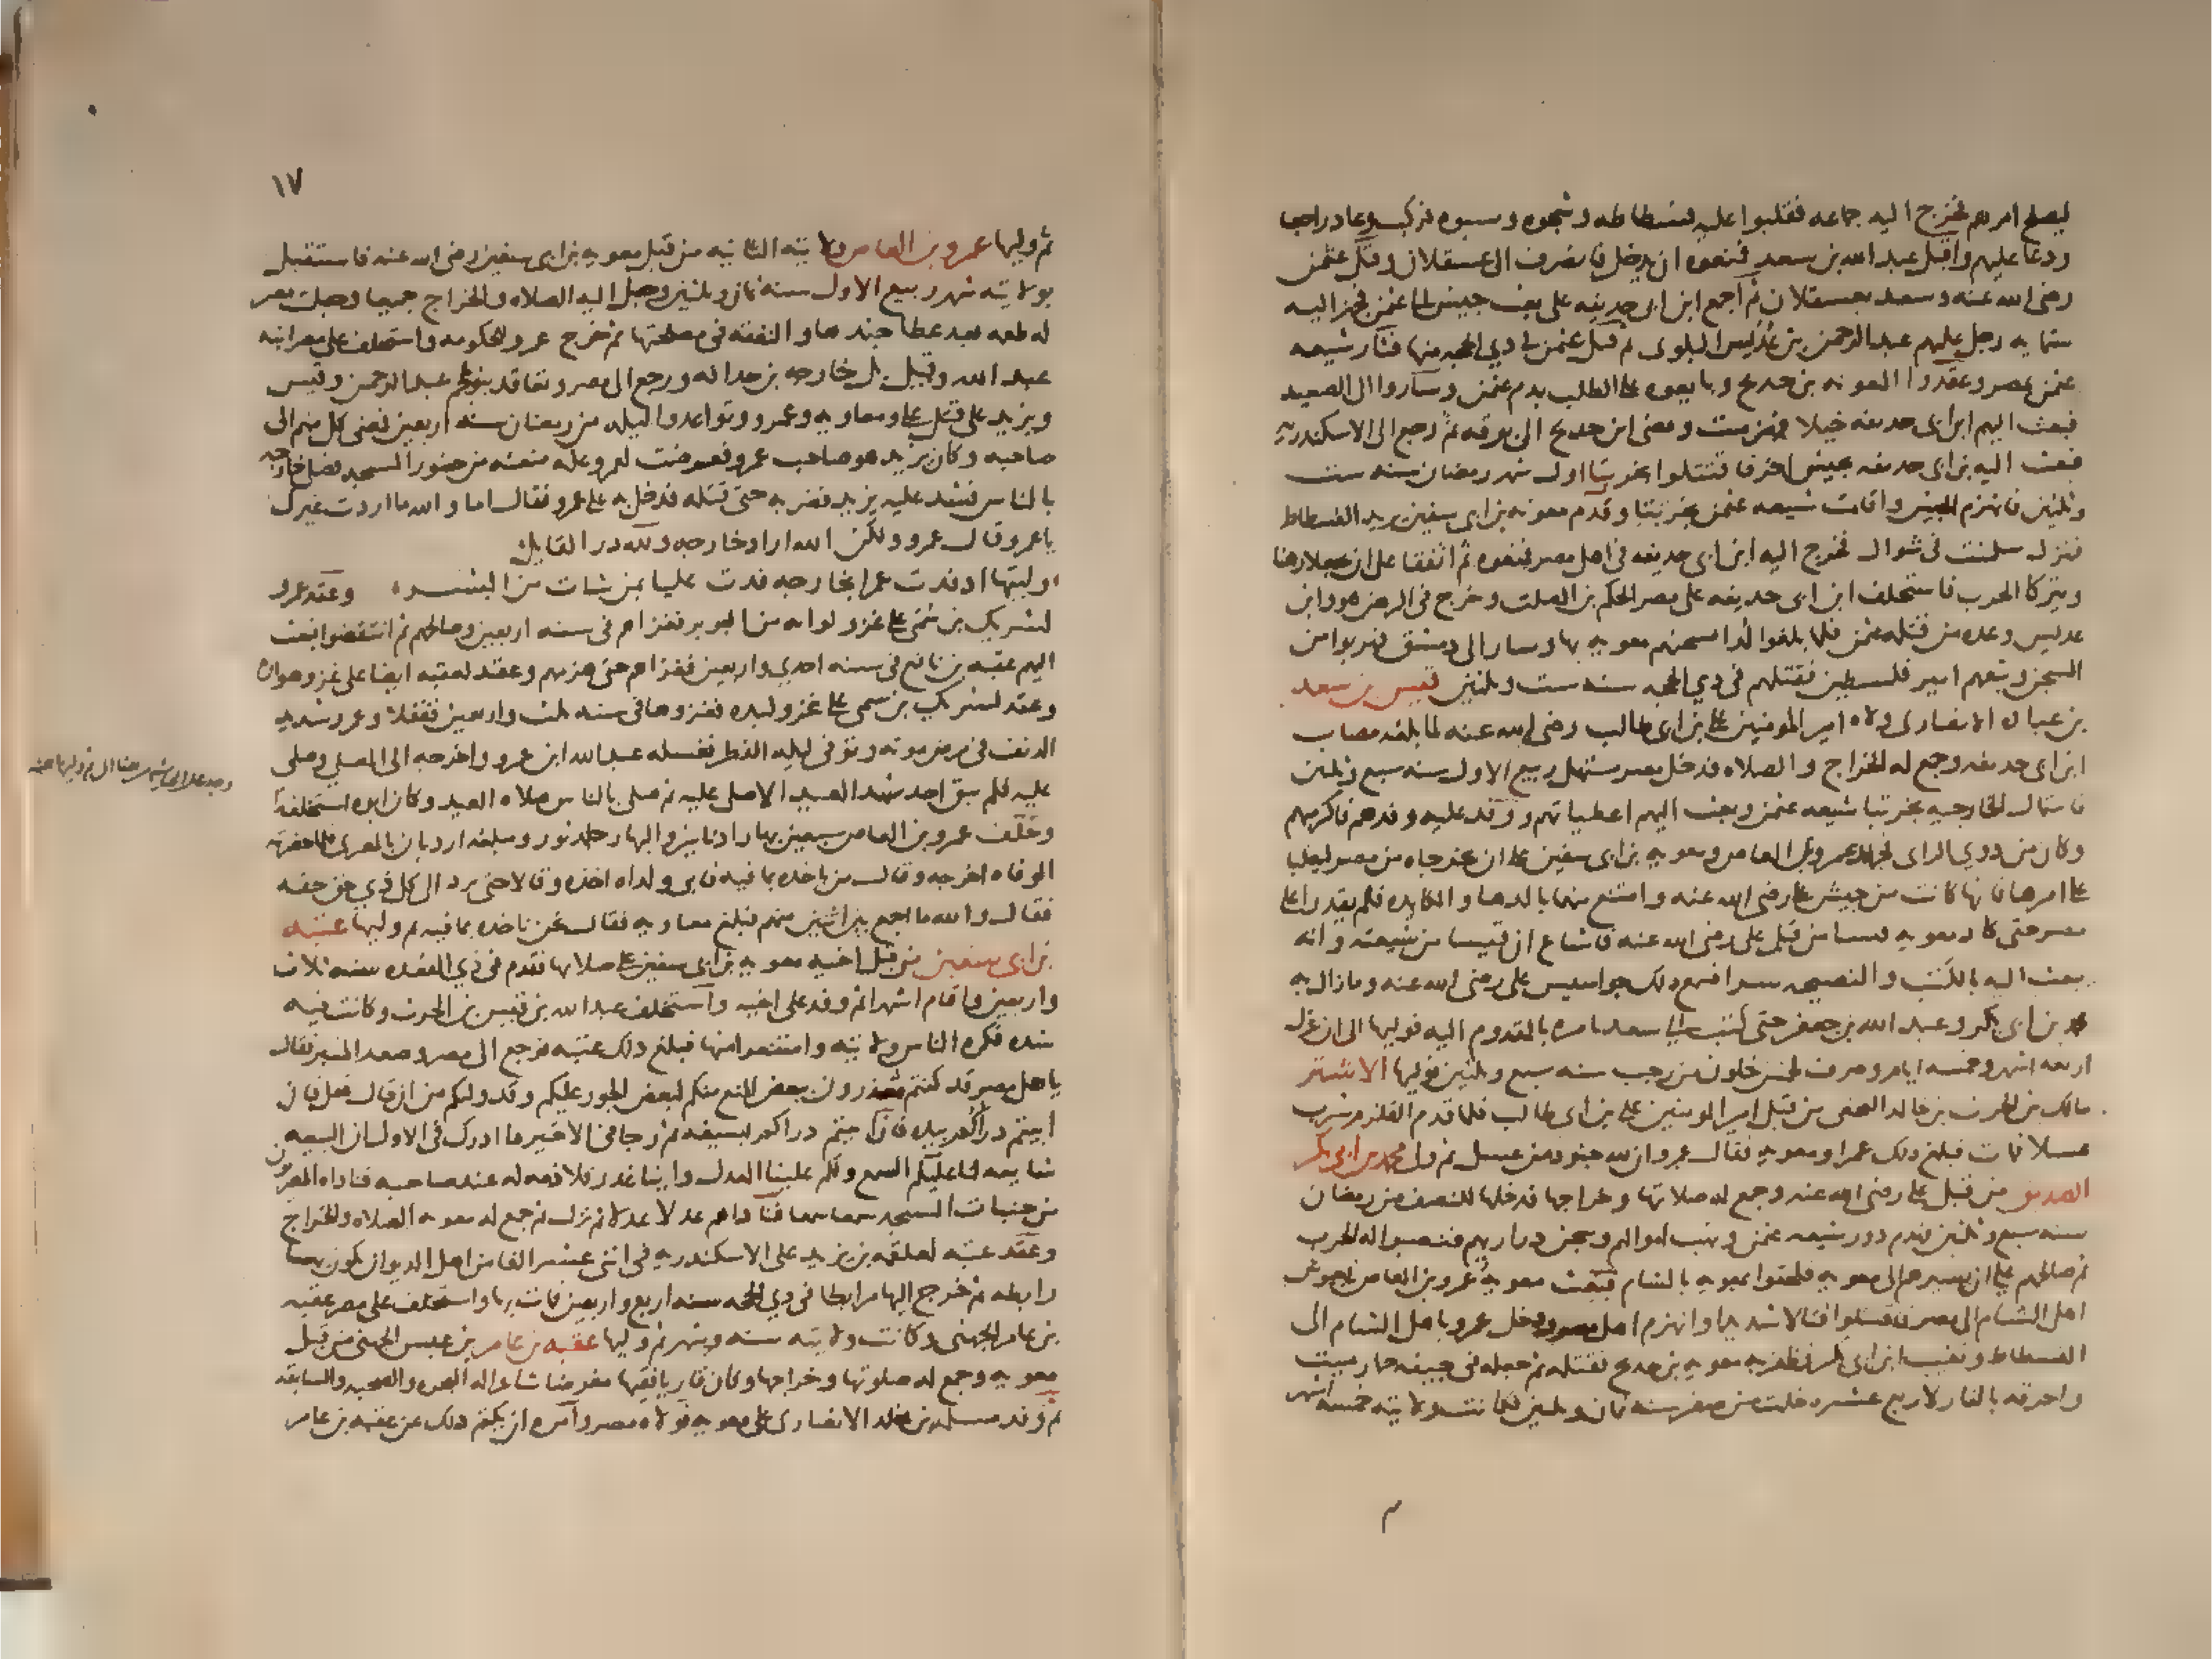 ليصلح امرهم فخرج اليه جماعه فقلبوا عليه فسطاطه وشجوه وسبوه فركب وعاد راجعا
ودعا عليهم واقبل عبد الله بن سعد فمنعوه ان يدخل فانصرف الى عسقلان وقتل عثمن
رضى الله عنه وسعد بعسقلان ثم اجمع ابن ابى حذيفه على بعث جيش الى عثمن فجهز اليه
ستمايه رجل عليهم عبد الرحمن بن عديس البلوى ثم قتل عثمن فى ذي الحجه منها فثار شيعه
عثمن بمصر وعقدوا لمعويه بن حديج وبايعوه على الطلب بدم عثمن وساروا الى الصعيد
فبعث اليهم ابن ابى حذيفه خيلا فهزمت ومضى ابن حديج الى برقه ثم رجع الى الاسكندريه
فبعث اليه بن ابى حذيفه بجيش اخر فاقتتلوا بخربتا اول شهر رمضان سنه ست
وثلثين فانهزم الجيش واقامت شيعه عثمن بخربتا وقدم معويه بن ابى سفين يريد الفسطاط
فنزل سلمنت فى شوال فخرج اليه ابن ابى حذيفه فى اهل مصر فمنعوه ثم اتفقا على ان يجعلا رهنا
ويتركا الحرب فاستخلف ابن ابى حذيفه على مصر الحكم بن الصلت وخرج فى الرهن هو وابن
عديس وعده من قتله عثمن فلما بلغوا لدا سجنهم معويه بها وسار الى دمشق فهربوا من
السجن وتبعهم امير فلسطين فقتلهم فى ذي الحجه سنه ست وثلثين قيس بن سعد
بن عباده الانصارى ولاه امير المومنين على بن ابى طالب رضى الله عنه لما بلغه مصاب
ابن ابى حذيفه وجمع له الخراج والصلاه فدخل مصر مستهل ربيع الاول سنه سبع وثلثين
فاستمال الخارجيه بخربتا شيعه عثمن وبعث اليهم اعطياتهم ووفد عليه وفدهم فاكرمهم
وكان من ذوي الراى فجهد عمرو بن العاص ومعويه بن ابى سفين على ان يخرجاه من مصر ليغلبا
على امرها فانها كانت من جيش على رضى الله عنه وامتنع منهما بالدها والمكايده فلم يقدرا على
مصر حتى كاد معويه قيسا من قبل على رضى الله عنه فاشاع ان قيسا من شيعته وانه
يبعث اليه بالكتب والنصيحه سرا فسمع ذلك جواسيس على رضى الله عنه ومازال به
محمد بن ابى بكر وعبد الله بن جعفر حتى كتب الى سعد يامره بالقدوم اليه فوليها الى ان عزل
اربعه اشهر وخمسه ايام وصرف لخمس خلون من رجب سنه سبع وثلثين فوليها الاشتر
مالك بن الحرث بن خالد النخعى من قبل امير المومنين على بن ابى طالب فلما قدم القلزم شرب
عسلا فمات فبلغ ذلك عمرا ومعويه فقال عمرو ان لله جنودا من عسل ثم ول محمد بن ابى بكر
الصديق من قبل على رضى الله عنه وجمع له صلاتها وخراجها فدخلها للنصف من رمضان
سنه سبع وثلثين فهدم دور شيعه عثمن ونهب اموالهم وسجن ذراريهم فنصبوا له الحرب
ثم صالحهم على ان يسيرهم الى معويه فلحقوا بمعويه بالشام فبعث معويه عمرو بن العاص بجيوش
اهل الشام الى مصر فاقتتلوا قتالا شديدا وانهزم اهل مصر ودخل عمرو باهل الشام الى
الفسطاط وتغيب ابن ابى بكر فظفر به معويه بن حديج فقتله ثم جعله فى جيفه حمار ميت
واحرقه بالنار لاربع عشره خلت من صفر سنه ثمان وثلثين فكانت ولايته خمسه اشهر
١٧
ثم وليها عمرو بن العاص ولايته الثانيه من قبل معويه بن ابى سفين رضى الله عنه فاستقبل
بولايته شهر ربيع الاول سنه ثمان وثلثين وجعل اليه الصلاه والخراج جميعا وجعلت مصر
له طعمه بعد عطا جندها والنفقه فى مصلحتها ثم خرج عمرو للحكومه واستخلف على مصر ابنه
عبد الله وقيل بل خارجه بن حذافه ورجع الى مصر وتعاقد بنو ملجم عبد الرحمن وقيس
ويزيد على قتل على ومعاويه وعمرو وتواعدوا ليله من رمضان سنه اربعين فمضى كل منهم الى
صاحبه وكان يزيد هو صاحب عمرو فعرضت لعمرو عله منعته من حضور المسجد فصلى خارجه
بالناس فشد عليه يزيد فضربه حتى قتله فدخل به على عمرو فقال اما والله ما اردت غيرك
ياعمرو قال عمرو ولكن الله اراد خارجه ولله در القايل
وليتها اذ فدت عمرا بخارجه فدت عليا بمن شات من البشر وعقد عمرو
لشريك بن سمى على غزو لواته من البربر فغزاهم فى سنه اربعين وصالحهم ثم انتقضوا فبعث
اليهم عقبه بن نافع فى سنه احدي واربعين فغزاهم حتى هزمهم وعقد لعقبه ايضا على غزو هواره
وعقد لشريك بن سمى على غزو لبده فغزوها فى سنه ثلث واربعين فقفلا وعمرو شديد
الدنف فى مرض موته وتوفى ليله الفطر فغسله عبد الله ابن عمرو واخرجه الى المصلى وصلى
عليه فلم يبق احد شهد العيد الا صلى عليه ثم صلى بالناس صلاه العيد وكان ابوه استخلفه
وخلف عمرو بن العاص سبعين بهارا دنانير والبهار جلد ثور ومبلغه اردبان بالمصرى فلما حضرته
الوفاه اخرجه وقال من ياخذه بما فيه فابى ولداه اخذه وقالا حتى ترد الى كل ذي حق حقه
فقال والله ما اجمع بين اثنين منهم فبلغ معاويه فقال نحن ناخذه بما فيه ثم وليها عتبه
بن ابى سفين من قبل اخيه معويه بن ابى سفين على صلاتها فقدم فى ذي القعده سنه ثلاث
واربعين واقام اشهرا ثم وفد على اخيه واستخلف عبد الله بن قيس بن الحرث وكانت فيه
شده فكره الناس ولايته وامتنعوا منها فبلغ ذلك عتبه فرجع الى مصر وصعد المنبر فقال
ياهل مصر قد كنتم تعذرون ببعض المنع منكم لبعض الجور عليكم وقد وليكم من ان قال فعل فان
ابيتم دراكم بيده فان ابيتم دراكم بسيفه ثم رجا فى الاخير ما ادرك فى الاول ان البيعه
شايعه لنا عليكم السمع ولكم علينا العدل واينا غدر فلا ذمه له عند صاحبه فناداه المصريون
من جنبات المسجد سمعا سمعا فناداهم عدلا عدلا ثم نزل ثم جمع له معويه الصلاه والخراج
وعقد عتبه لعلقمه بن يزيد على الاسكندريه فى اثنى عشر الفا من اهل الديوان يكون بها
رابطه ثم خرج اليها مرابطا فى ذي الحجه سنه اربع واربعين فمات بها واستخلف على مصر عقبه
بن عامر الجهنى وكانت ولايته سنه وشهر ثم وليها عقبه بن عامر بن عبس الجهنى من قبل
معويه وجمع له صلوتها وخراجها وكان قاريا فقيها مفرضا شاعرا له الهجره والصحبه والسابقه
ثم وفد مسلمه بن مخلد الانصارى على معويه فولاه مصر وامره ان يكتم ذلك عن عقبه بن عامر